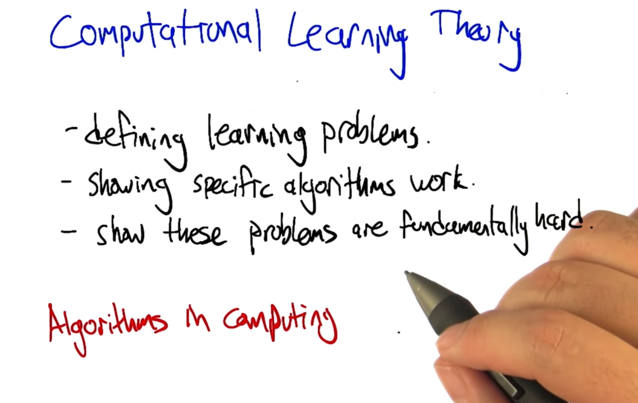 Computational Learning Theory
- defining learning problems.
- showing specific algorithms work.
- show these problems are fundamentally hard.
Algorithms in computing